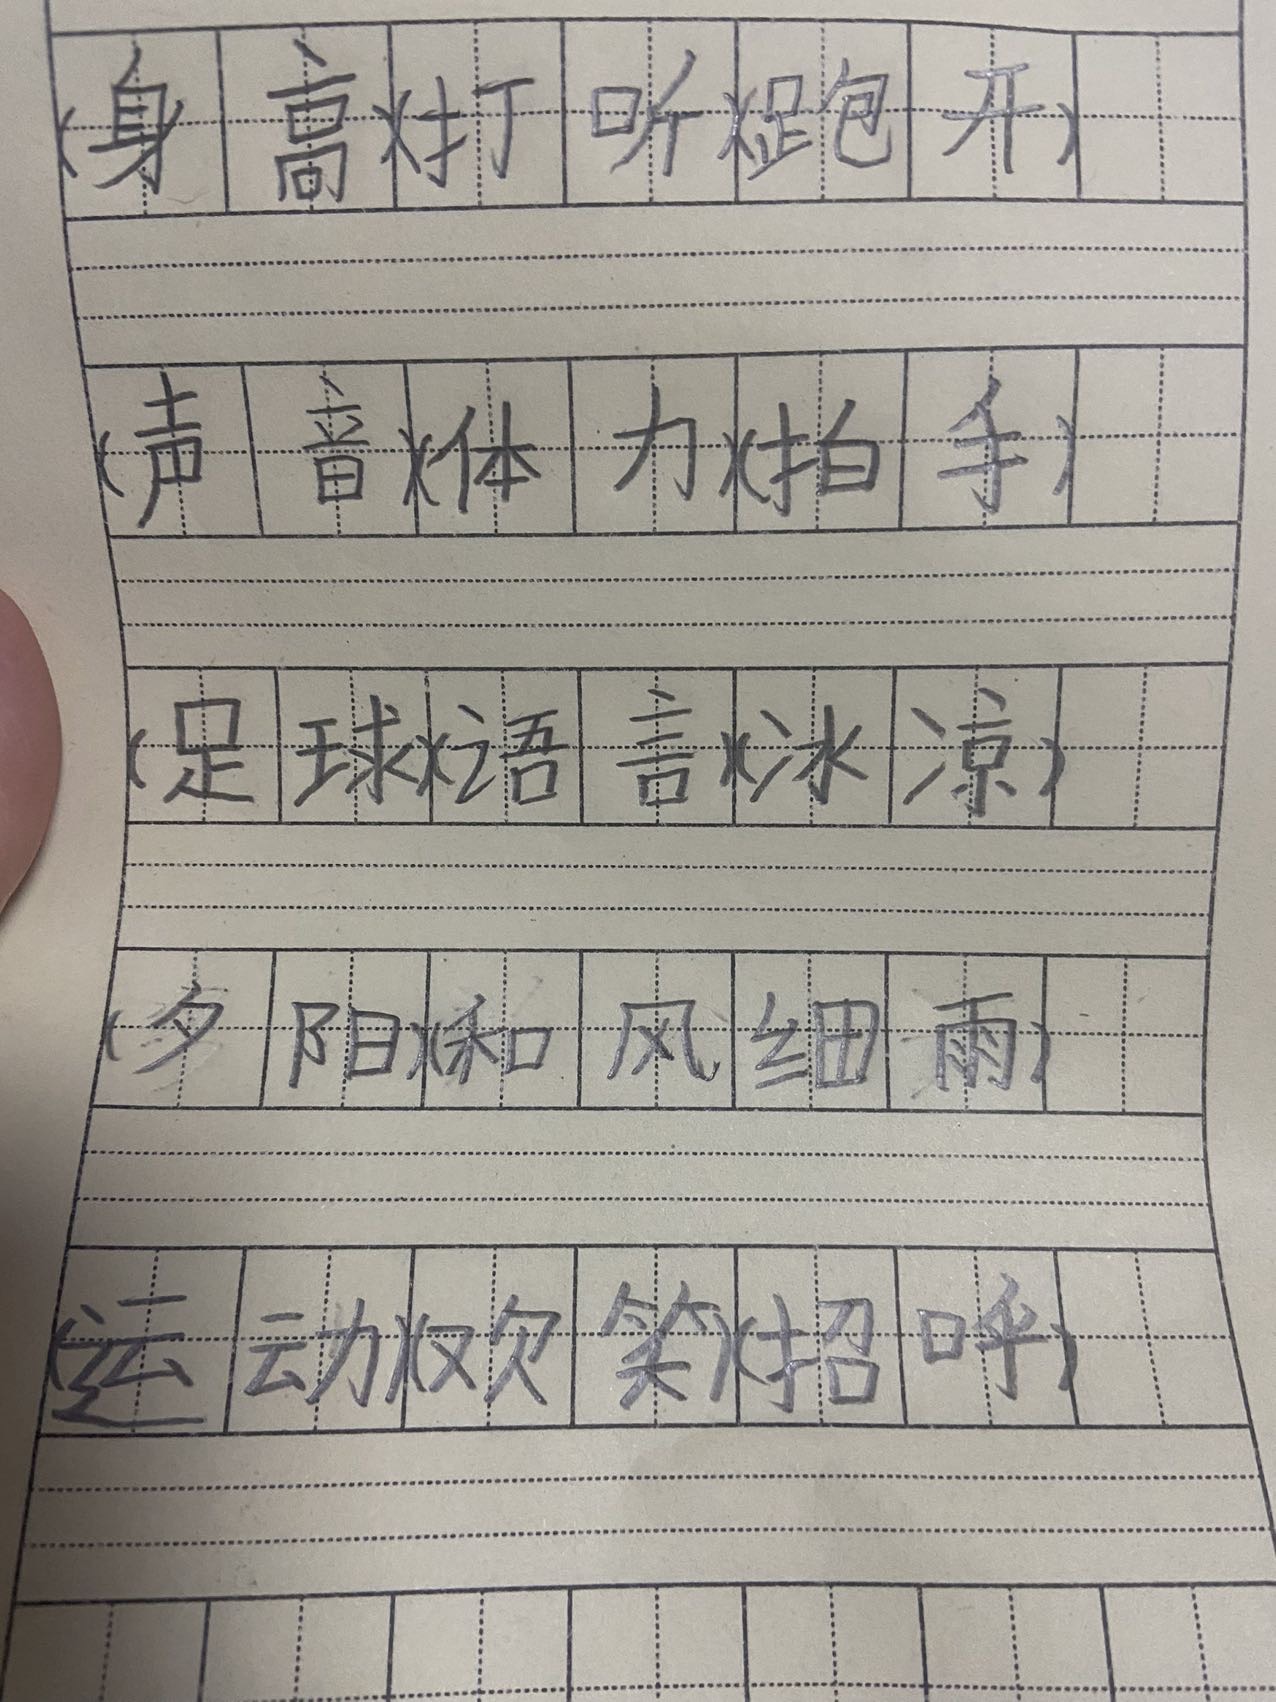 (身高)(打听)(跑开)
(声音)(体力)(拍手)
(足球)(语言)(冰凉)
(夕阳)(和风细雨)
(运动)(欢笑)(招呼)